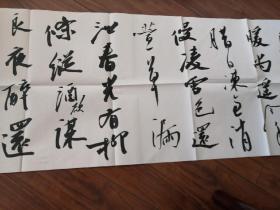 暖尚遥
腊日凍全消
侵凌雪色還
萱草漏
泄春光有柳
條縱酒欲謀
良夜醉還